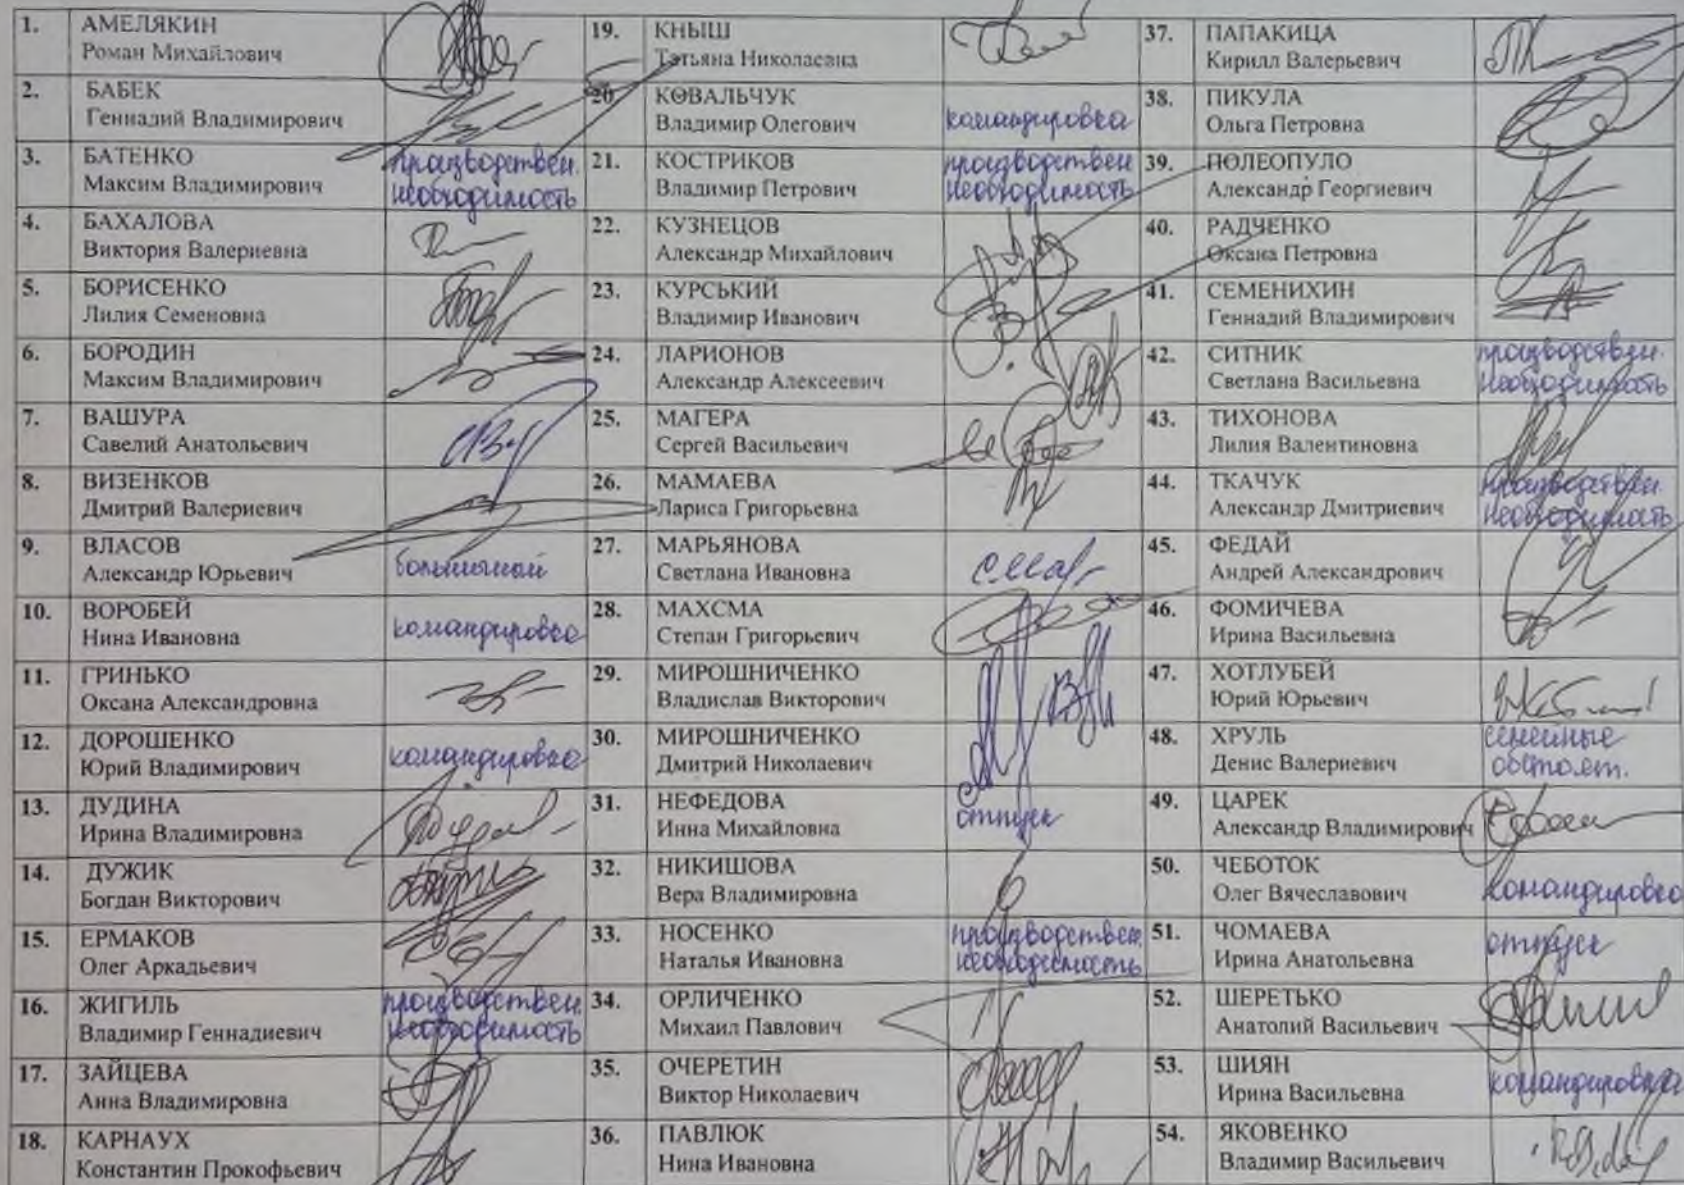 1. АМЕЛЯКИН
Роман Михайлович
2. БАБЕК
Геннадий Владимирович
3. БАТЕНКО
Максим Владимирович
производствен.
необходимость
4. БАХАЛОВА
Виктория Валериевна
5. БОРИСЕНКО
Лилия Семеновна
6. БОРОДИН
Максим Владимирович
7. ВАШУРА
Савелий Анатольевич
8. ВИЗЕНКОВ
Дмитрий Валериевич
9. ВЛАСОВ
Александр Юрьевич
больничный
10. ВОРОБЕЙ
Нина Ивановна
командировка
11. ГРИНЬКО
Оксана Александровна
12. ДОРОШЕНКО
Юрий Владимирович
командировка
13. ДУДИНА
Ирина Владимировна
14. ДУЖИК
Богдан Викторович
15. ЕРМАКОВ
Олег Аркадьевич
16. ЖИГИЛЬ
Владимир Геннадиевич
производствен.
необходимость
17. ЗАЙЦЕВА
Анна Владимировна
18. КАРНАУХ
Константин Прокофьевич
19. КНЫШ
Татьяна Николаевна
20. КОВАЛЬЧУК
Владимир Олегович
командировка
21. КОСТРИКОВ
Владимир Петрович
производствен
необходимость
22. КУЗНЕЦОВ
Александр Михайлович
23. КУРСЬКИЙ
Владимир Иванович
24. ЛАРИОНОВ
Александр Алексеевич
25. МАГЕРА
Сергей Васильевич
26. МАМАЕВА
Лариса Григорьевна
27. МАРЬЯНОВА
Светлана Ивановна
28. МАХСМА
Степан Григорьевич
29. МИРОШНИЧЕНКО
Владислав Викторович
30. МИРОШНИЧЕНКО
Дмитрий Николаевич
31. НЕФЕДОВА
Инна Михайловна
отпуск
32. НИКИШОВА
Вера Владимировна
33. НОСЕНКО
Наталья Ивановна
производствен.
необходимость
34. ОРЛИЧЕНКО
Михаил Павлович
35. ОЧЕРЕТИН
Виктор Николаевич
36. ПАВЛЮК
Нина Ивановна
37. ПАПАКИЦА
Кирилл Валерьевич
38. ПИКУЛА
Ольга Петровна
39. ПОЛЕОПУЛО
Александр Георгиевич
40. РАДЧЕНКО
Оксана Петровна
41. СЕМЕНИХИН
Геннадий Владимирович
42. СИТНИК
Светлана Васильевна
производствен.
необходимость
43. ТИХОНОВА
Лилия Валентиновна
44. ТКАЧУК
Александр Дмитриевич
производствен.
необходимость
45. ФЕДАЙ
Андрей Александрович
46. ФОМИЧЕВА
Ирина Васильевна
47. ХОТЛУБЕЙ
Юрий Юрьевич
48. ХРУЛЬ
Денис Валериевич
семейные
обстоят.
49. ЦАРЕК
Александр Владимирович
50. ЧЕБОТОК
Олег Вячеславович
командировка
51. ЧОМАЕВА
Ирина Анатольевна
отпуск
52. ШЕРЕТЬКО
Анатолий Васильевич
53. ШИЯН
Ирина Васильевна
командировка
54. ЯКОВЕНКО
Владимир Васильевич